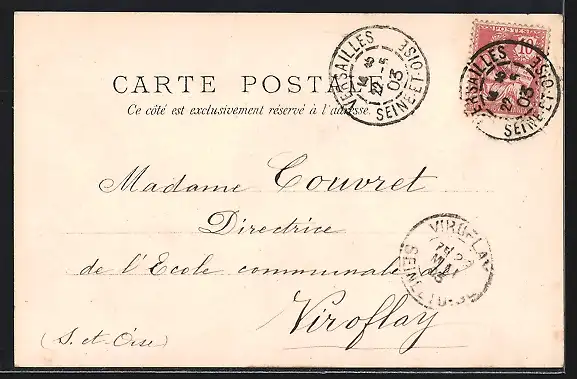 POSTES
10
VERSAILLES
03
SEINE-ET-OISE
VERSAILLES
03
SEINE-ET-OISE
CARTE POSTALE
Ce côté est exclusivement réservé à l'adresse.
Madame Couvret
Directrice
de l'Ecole communale de
Viroflay
(S. et-Oise)
VIROFLAY
MAI
03
SEINE-ET-OISE